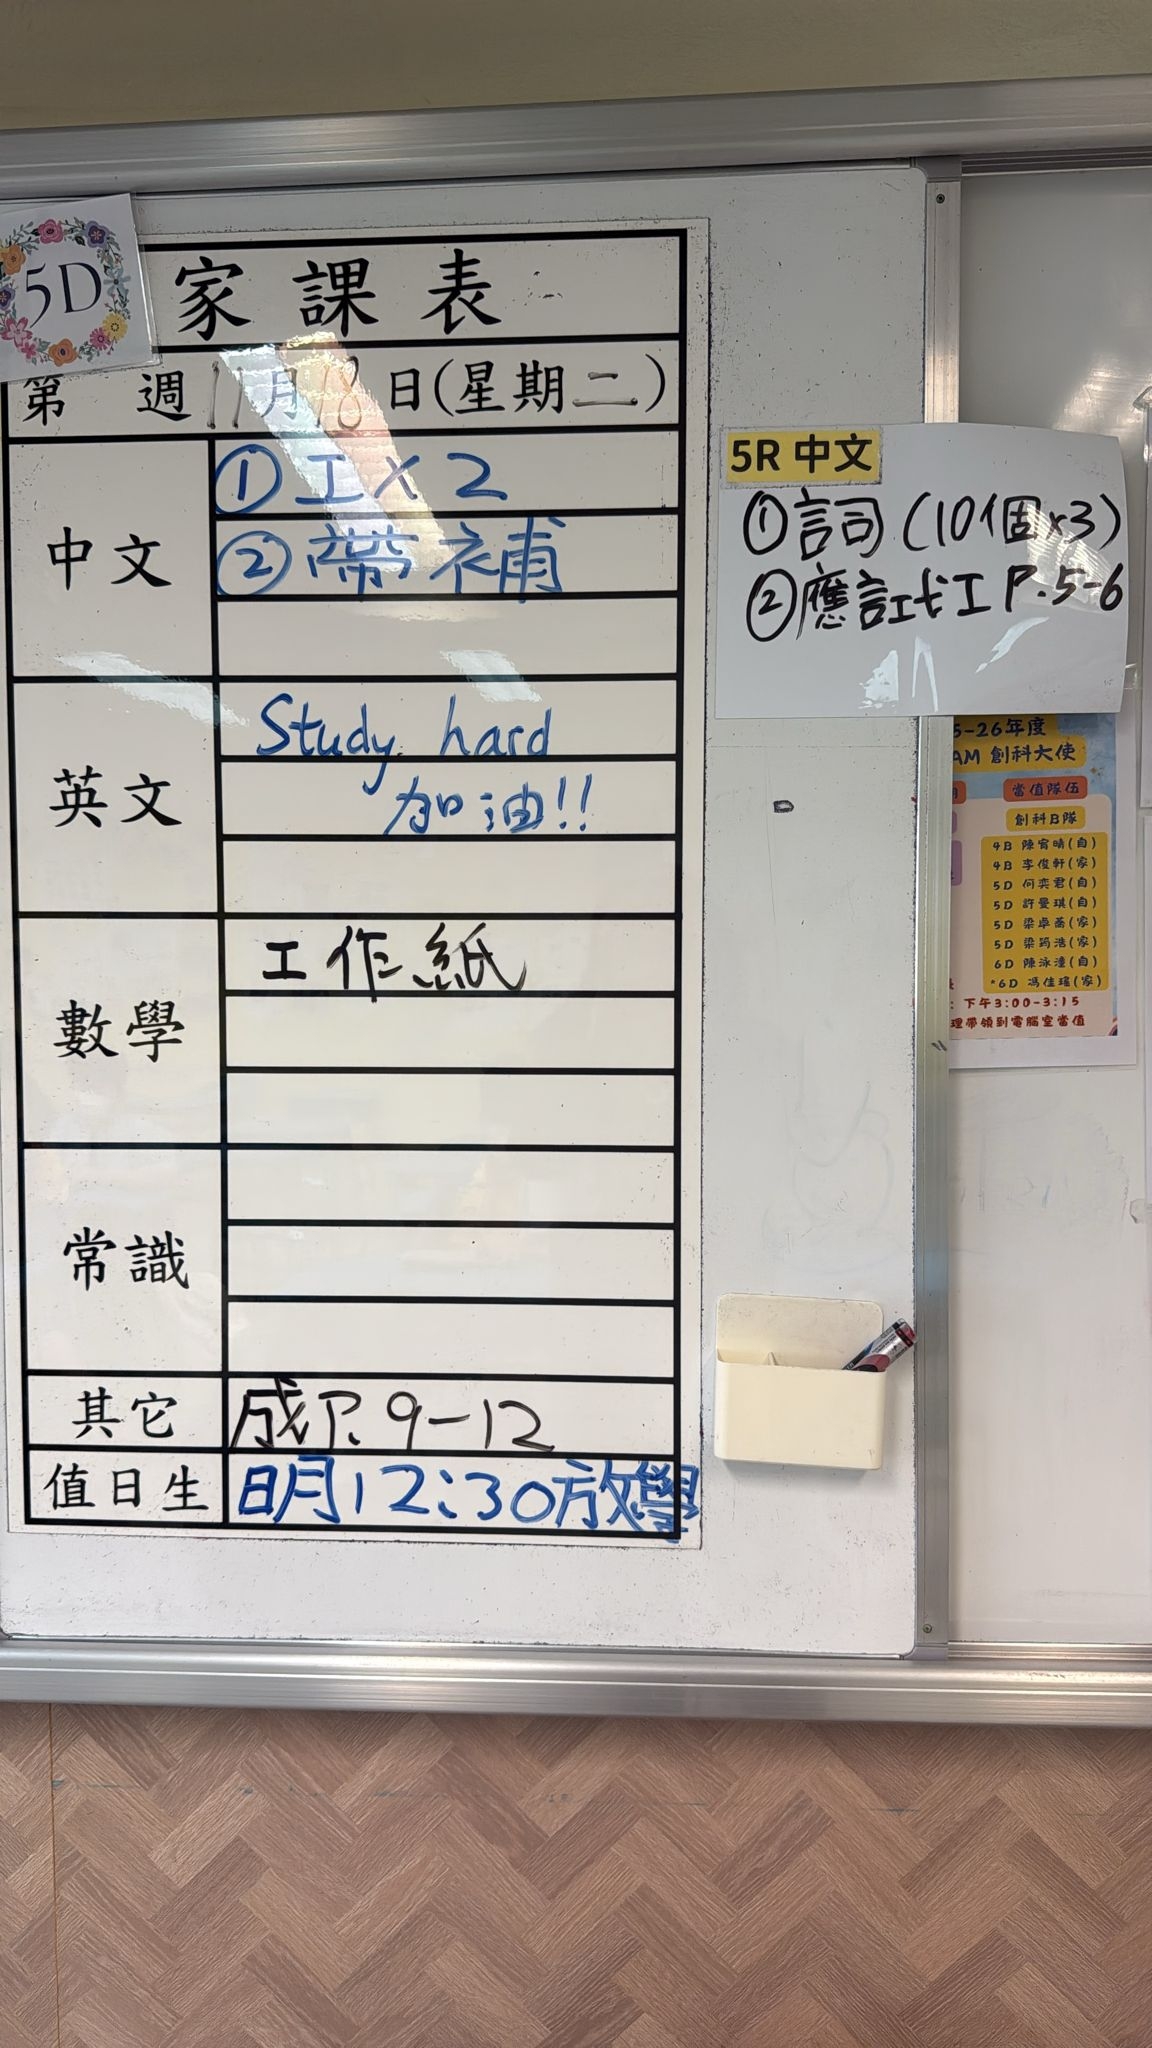 5D
家課表
第 週 11月18日(星期二)
中文
①工×2
②帶補
英文
Study hard
加油!!
數學
工作紙
常識
其它
成P.9-12
值日生
明12:30放學
5R 中文
①詞(10個×3)
②應試工P.5-6
5-26年度
AM 創科大使
當值隊伍
創科B隊
4B 陳宥晴(自)
4B 李俊軒(家)
5D 何奕君(自)
5D 許曼琪(自)
5D 梁卓喬(家)
5D 梁筠浩(家)
6D 陳泳潼(自)
*6D 馮佳瑤(家)
: 下午3:00-3:15
理帶領到電腦室當值